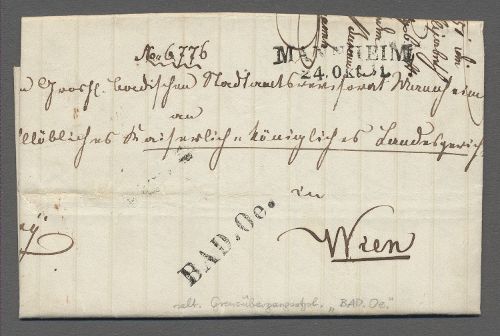 No. 6,776
MANNHEIM
24. Okt.
Grosh. badischen Stadtamtsrevisorat Mannheim
an
löbliches Kaiserlich-Königliches Landesgerich
in
BAD. Oe.
Wien
selt. Grenzübergangsstpl. „BAD. Oe."